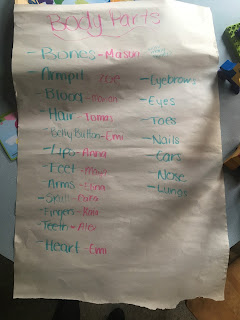 Body Parts
- Bones - Mason
Armpit
- Blood - Mason
- Hair Tomas
- Belly Button - Emi
- Lips - Anna
- Feet - Maya
Arms -
- Skull -
- Fingers -
- Teeth - Alex
- Heart - Emi
- Eyebrows
- Eyes
- Toes
- Nails
- Ears
Nose
- Lungs